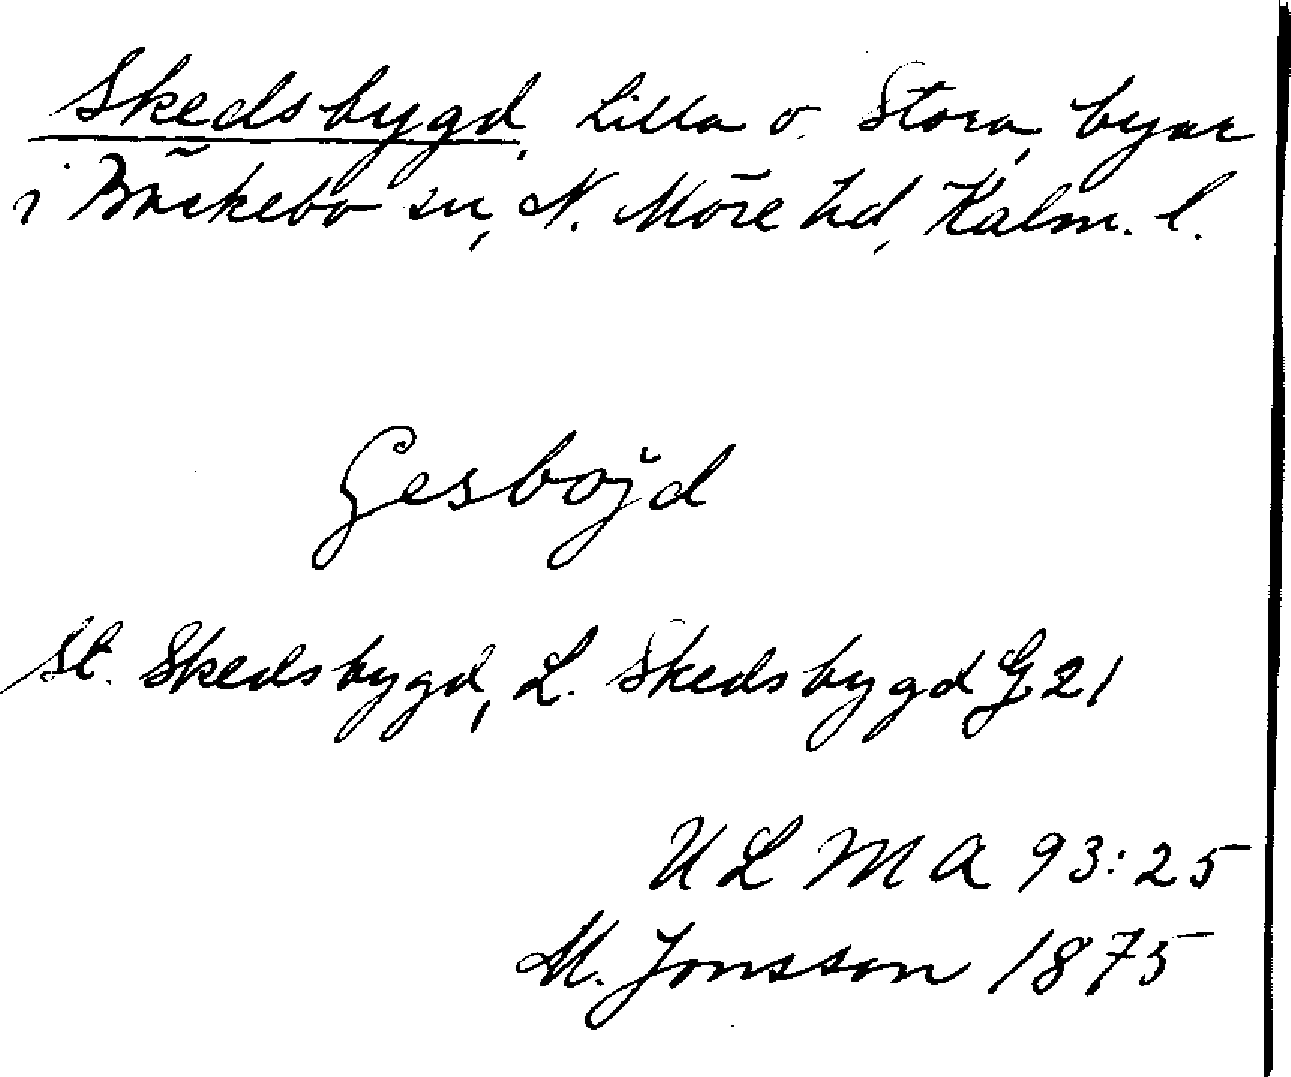 Skedsbygd, Lilla o. Stora, byar
i Bäckebo sn, N. Möre hd, Kalm. l.
Gesbojd
St. Skedsbygd, L. Skedsbygd G 21
ULMA 93:25
M. Jonsson 1875